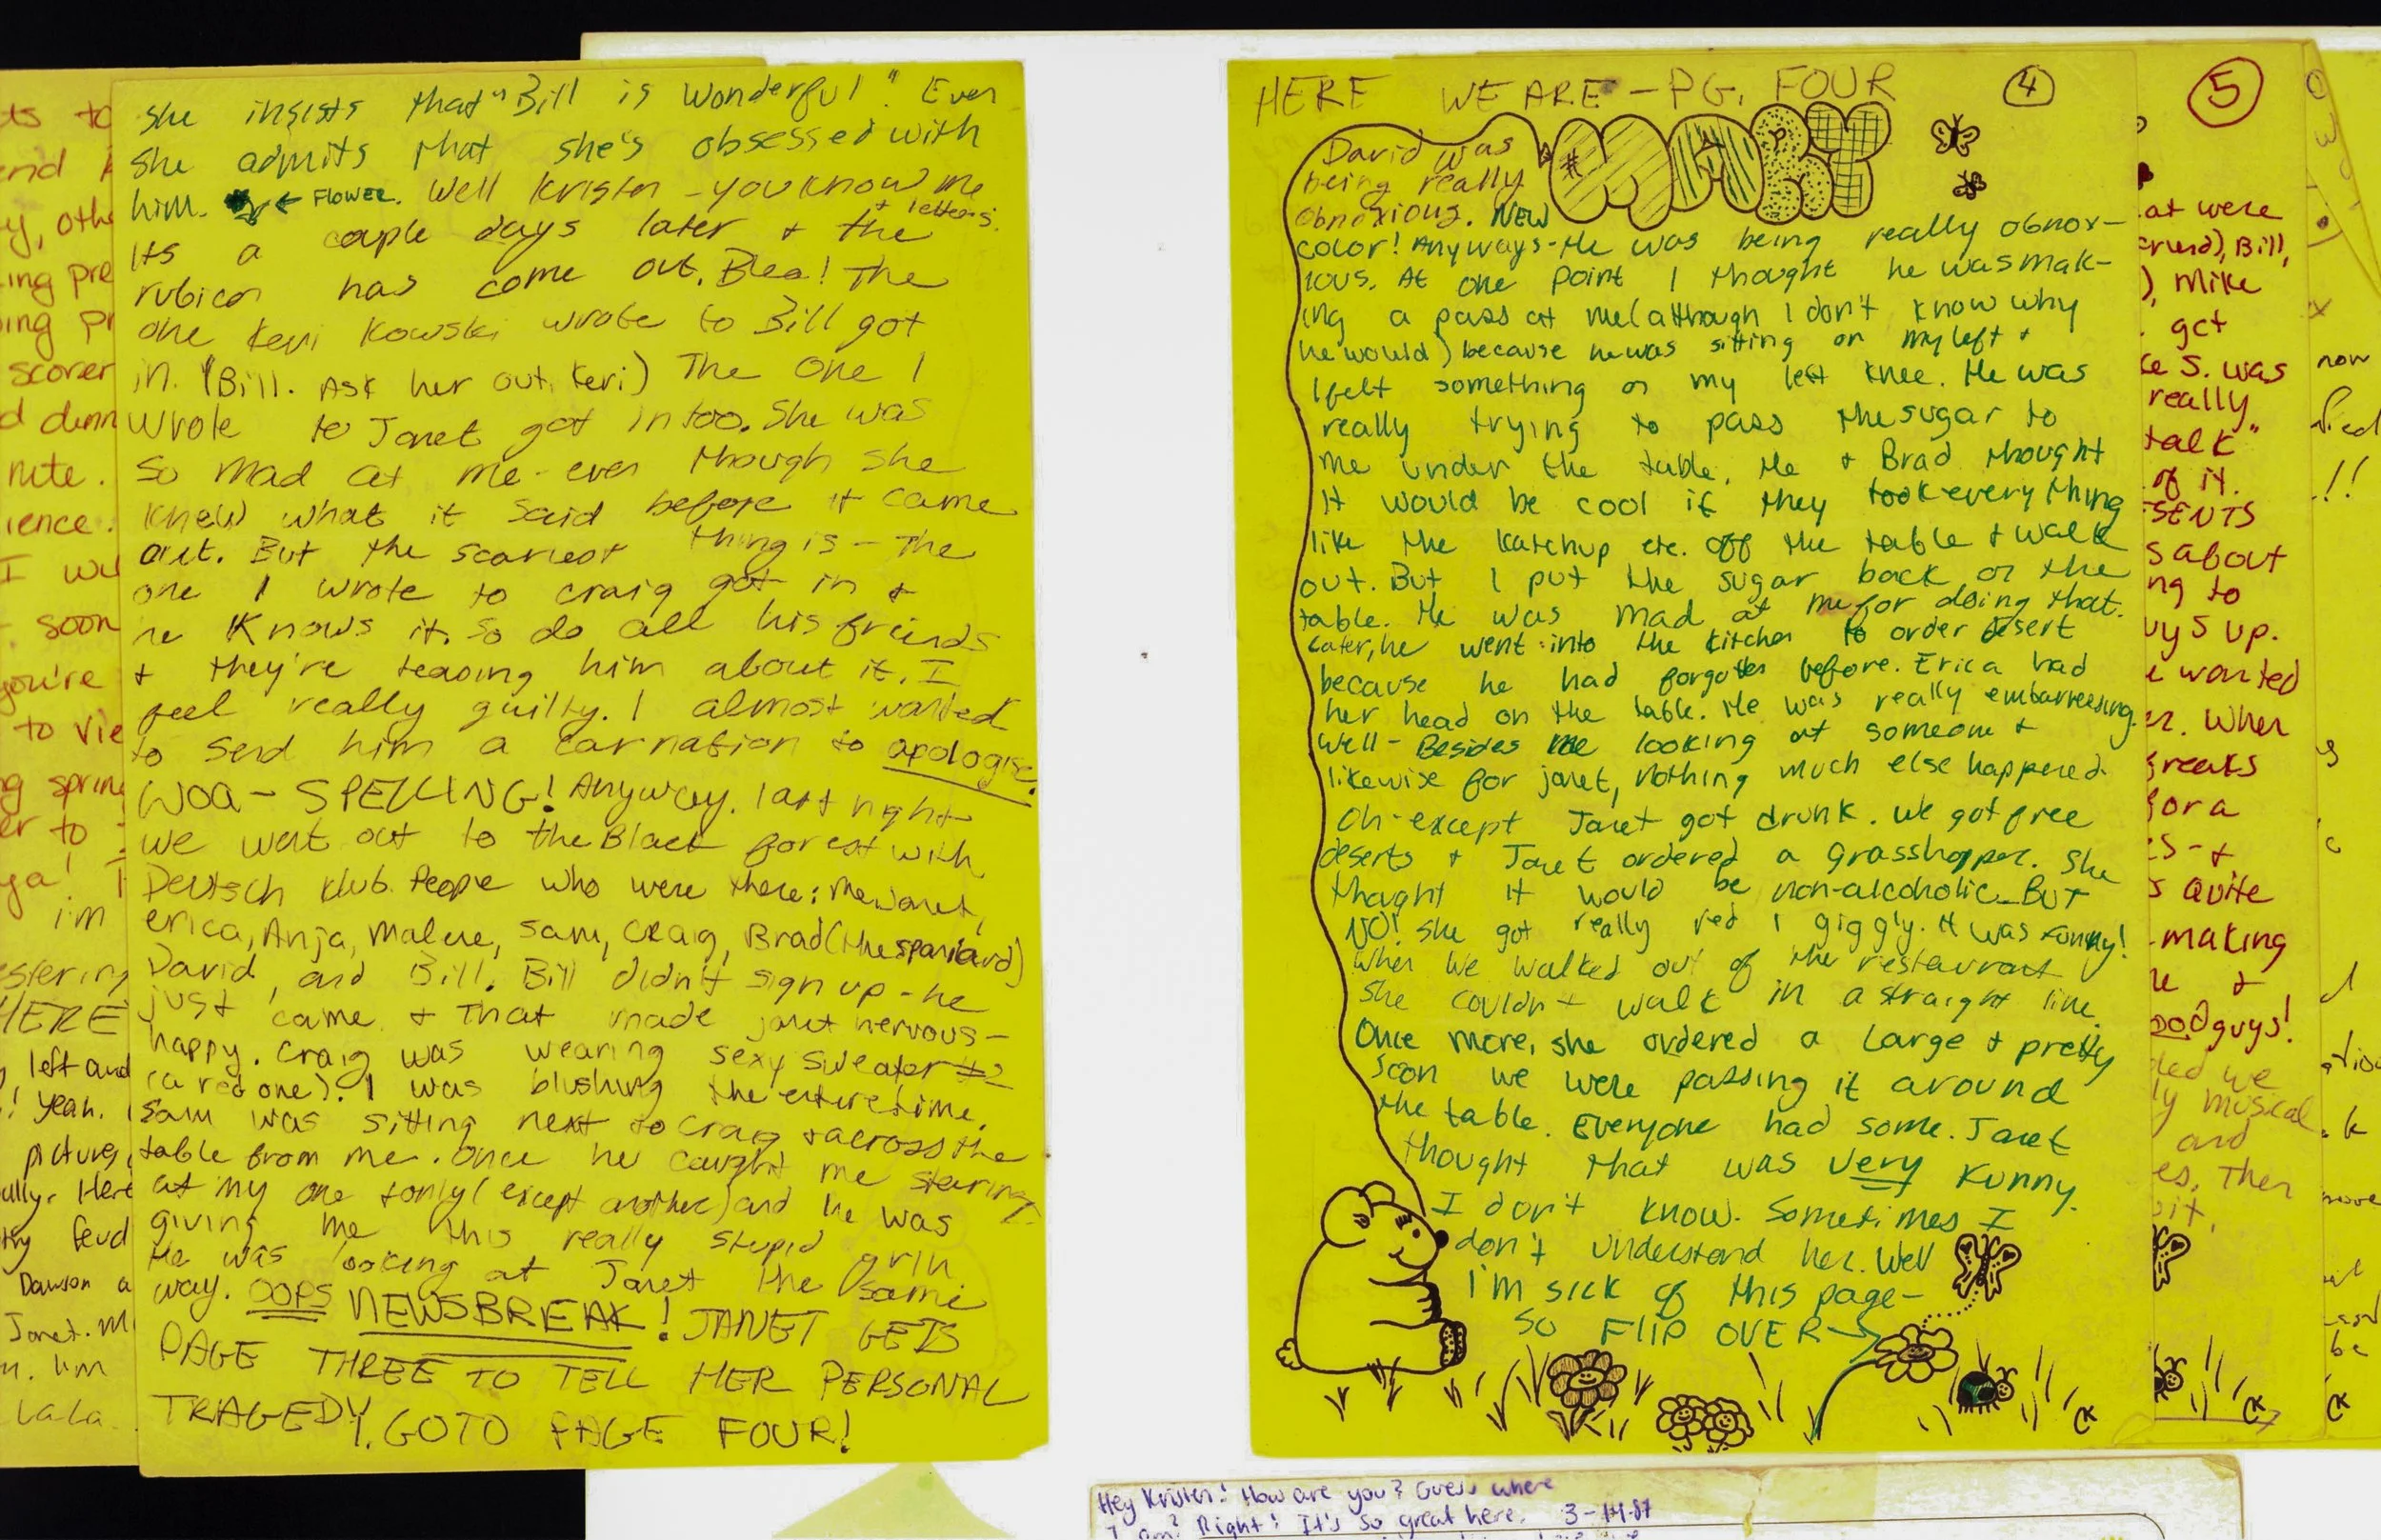 she insists that "Bill is wonderful". Even
she admits that she's obsessed with
him. ← FLOWER. Well Kristen - you know me
+ letters.
Its a couple days later + the
rubicon has come out. Blea! The
one Keri Kowski wrote to Bill got
in. (Bill. Ask her out, Keri) The one I
wrote to Janet got in too. She was
so mad at me - even though she
knew what it said before it came
out. But the scariest thing is - The
one I wrote to Craig got in +
he knows it. So do all his friends
+ they're teasing him about it. I
feel really guilty. I almost wanted
to send him a carnation to apologise.
WOA - SPELLING! Anyway. last night
we went out to the Black forest with
Deutsch Klub. People who were there: me, Janet,
erica, Anja, Malene, Sam, Craig, Brad (the spaniard)
David, and Bill. Bill didn't sign up - he
just came + That made janet nervous -
happy. Craig was wearing sexy sweater #2
(a red one). I was blushing the entire time.
Sam was sitting next to Craig + across the
table from me. Once he caught me staring
at my one + only (except another) and he was
giving me this really stupid grin.
He was looking at Janet the same
way. OOPS NEWSBREAK! JANET GETS
PAGE THREE TO TELL HER PERSONAL
TRAGEDY. GOTO PAGE FOUR!
HERE WE ARE - PG. FOUR 4
David was
being really
obnoxious. NEW
color! Anyways - He was being really obnox-
ious. At one point I thought he was mak-
ing a pass at me (although I don't know why
he would) because he was sitting on my left +
I felt something on my left knee. He was
really trying to pass the sugar to
me under the table. He + Brad thought
it would be cool if they took everything
like the katchup etc. off the table + walk
out. But I put the sugar back on the
table. He was mad at me for doing that.
Later, he went into the kitchen to order desert
because he had forgotten before. Erica had
her head on the table. He was really embarressing.
Well - Besides me looking at someone +
likewise for janet, nothing much else happened.
Oh - except Janet got drunk. We got free
deserts + Janet ordered a grasshopper. She
thought it would be non-alcoholic - BUT
NO! She got really red + giggly. It was funny!
When we walked out of the restaurant
she couldn't walk in a straight line.
Once more, she ordered a Large + pretty
soon we were passing it around
the table. Everyone had some. Janet
thought that was very funny.
I don't know. Sometimes I
don't understand her. Well
I'm sick of this page -
SO FLIP OVER →
CK
5
at were
Bill,
), Mike
get
S. was
really
talk"
of it.
about
to
up.
wanted
When
for a
Quite
making
+
guys!
we
musical
and
Then
CK
now
!!
be
CK
scorer
nite.
I
soon
you're
to
to
i'm
HERE
left and
! yeah.
picture,
Here
Dawson a
Janet.
Lala.
Hey Kristen! How are you? Guess where
I am? Right! It's so great here. 3-14-87